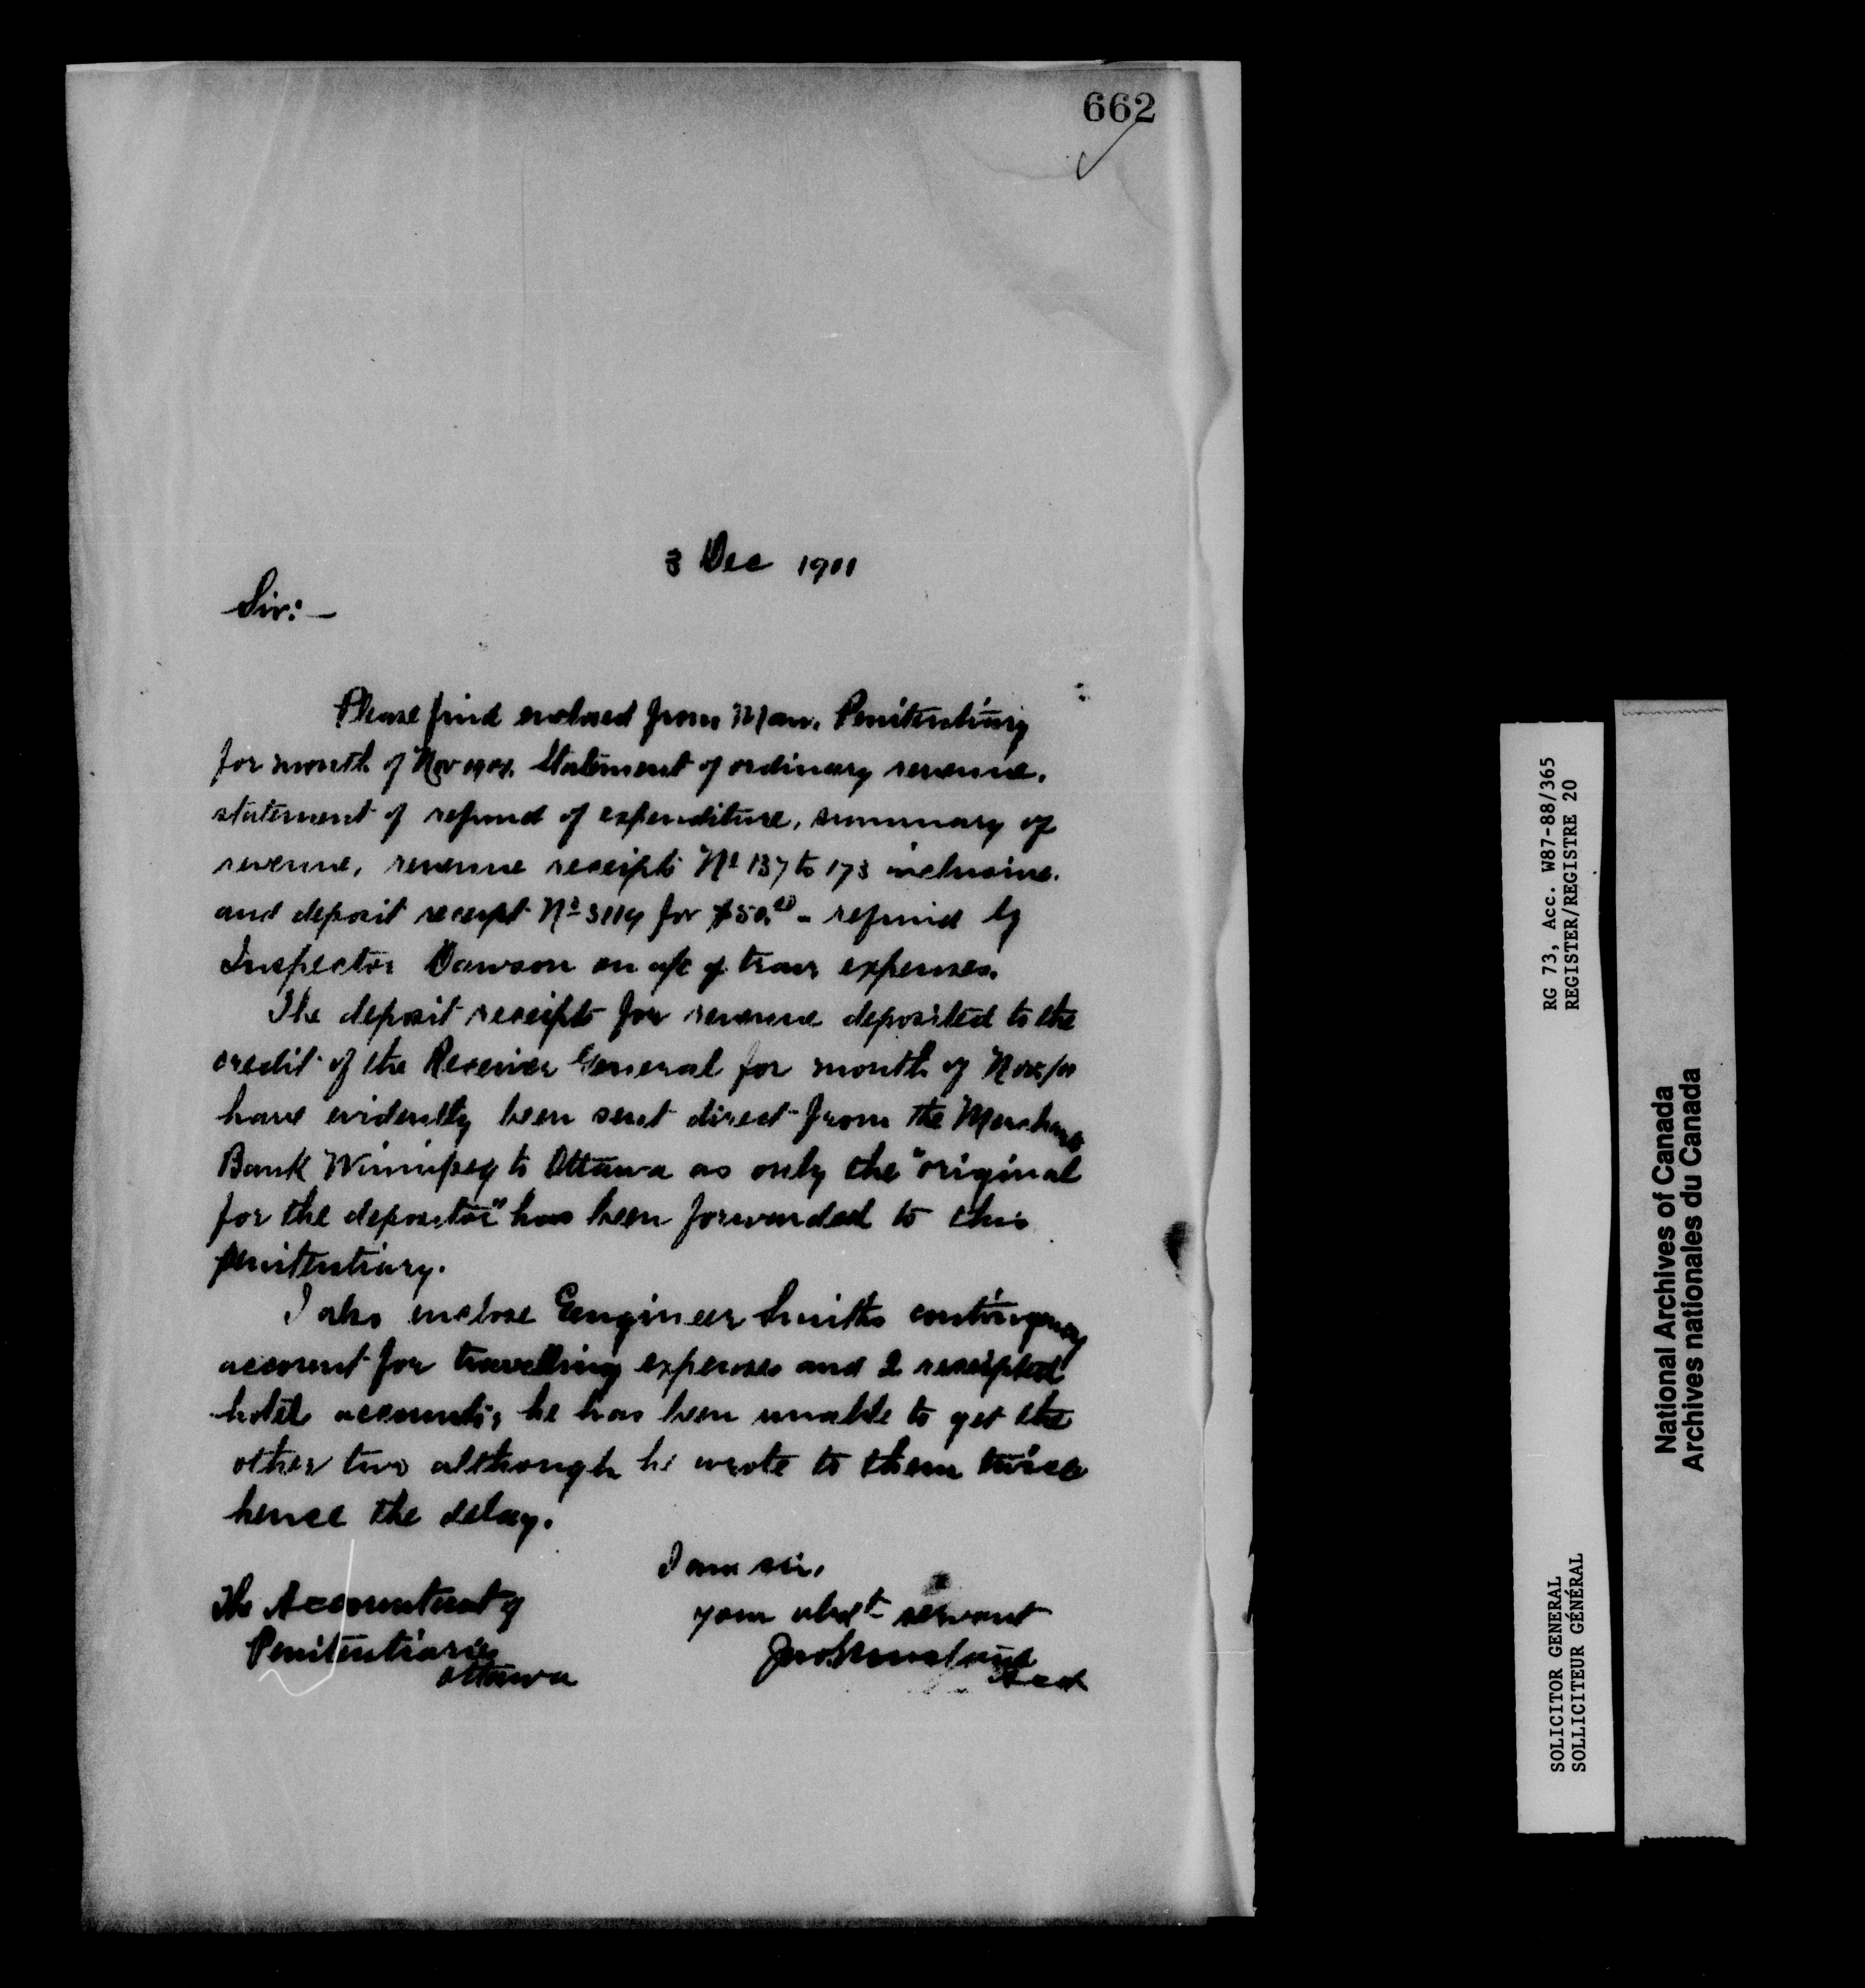 662
3 Dec 1901
Sir:—
Please find enclosed from Man. Penitentiary
for month of Nov 1901. Statement of ordinary revenue.
statement of refund of expenditure, summary of
revenue, revenue receipts Nº 137 to 173 inclusive.
and deposit receipt Nº 3114 for $50.00 - refund by
Inspector Dawson on a/c of trav expenses.
The deposit receipts for revenue deposited to the
credit of the Receiver General for month of Nov/01
have evidently been sent direct from the Merchants
Bank Winnipeg to Ottawa as only the "original
for the depositor" has been forwarded to this
penitentiary.
I also enclose Engineer Smiths contingency
account for travelling expenses and 2 receipted
hotel accounts; he has been unable to get the
other two although he wrote to them twice
hence the delay.
I am sir,
your obedt servant
Acct
The Accountant of
Penitentiaries
Ottawa
RG 73, Acc. W87-88/365
REGISTER/REGISTRE 20
SOLICITOR GENERAL
SOLLICITEUR GÉNÉRAL
National Archives of Canada
Archives nationales du Canada